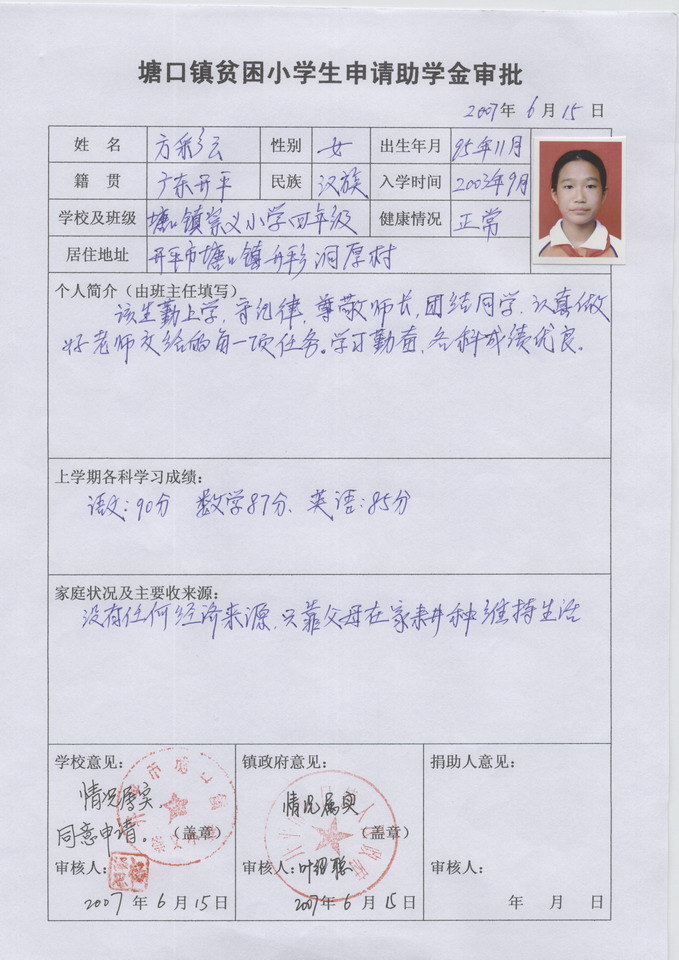 塘口镇贫困小学生申请助学金审批
2007年 6月 15日
姓 名 方彩云 性别 女 出生年月 95年11月
籍 贯 广东开平 民族 汉族 入学时间 2003年9月
学校及班级 塘口镇崇义小学四年级 健康情况 正常
居住地址 开平市塘口镇 洞厚村
个人简介（由班主任填写）
该生勤上学，守纪律，尊敬师长，团结同学，认真做
好老师交给的每一项任务。学习勤奋，各科成绩优良。
上学期各科学习成绩：
语文：90分 数学87分、英语：85分
家庭状况及主要收来源：
没有任何经济来源，只靠父母在家耕种维持生活
学校意见： 镇政府意见： 捐助人意见：
情况属实， 情况属实
同意申请。（盖章） （盖章）
审核人： 审核人：叶绍聪 审核人：
2007年6月15日 2007年6月15日 年 月 日